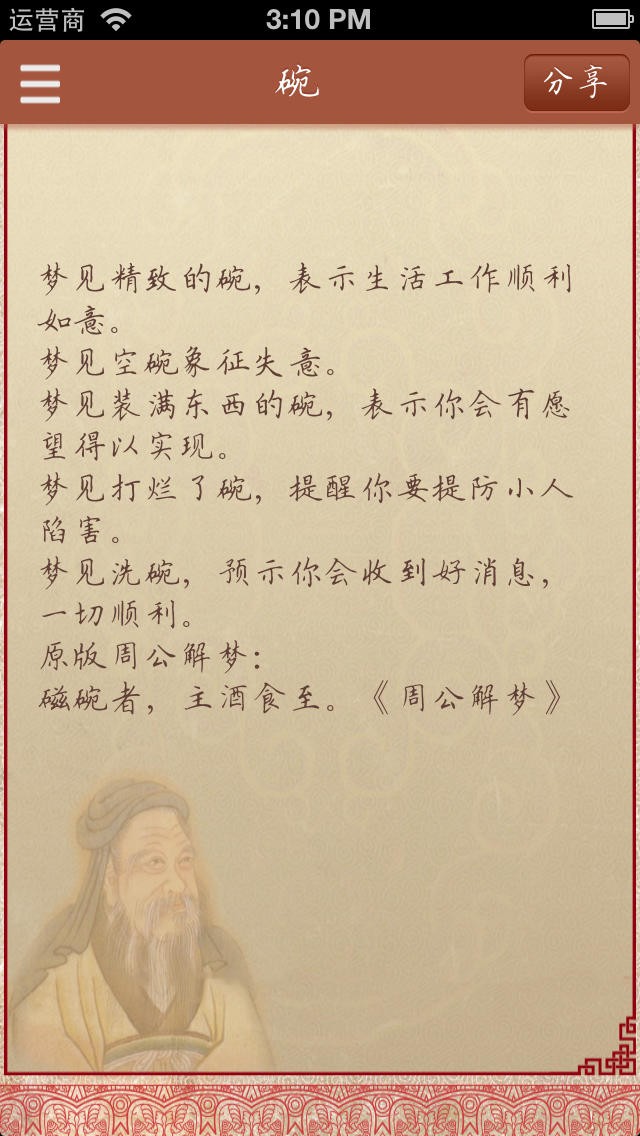 运营商 3:10 PM
碗
分享
梦见精致的碗，表示生活工作顺利
如意。
梦见空碗象征失意。
梦见装满东西的碗，表示你会有愿
望得以实现。
梦见打烂了碗，提醒你要提防小人
陷害。
梦见洗碗，预示你会收到好消息，
一切顺利。
原版周公解梦：
磁碗者，主酒食至。《周公解梦》